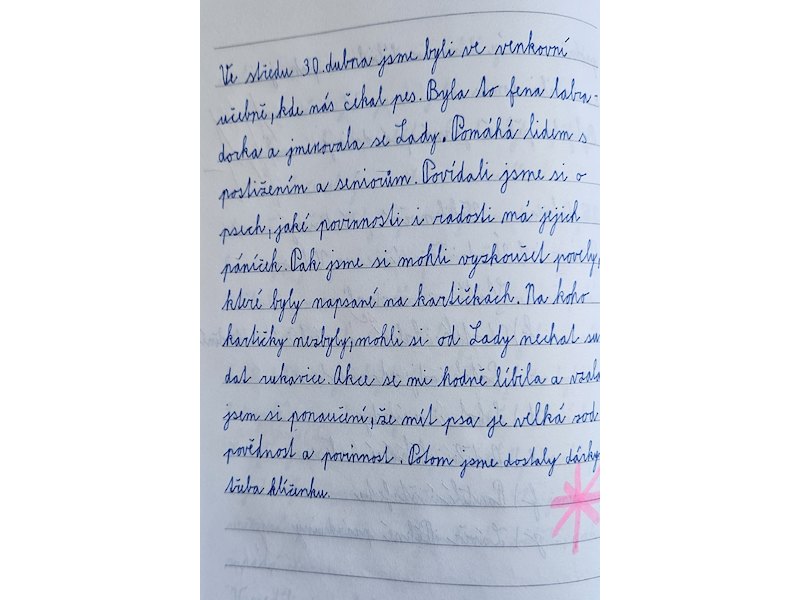 Ve středu 30. dubna jsme byli ve venkovní
učebně, kde nás čekal pes. Byla to fena labra-
dorka a jmenovala se Lady. Pomáhá lidem s
postižením a seniorům. Povídali jsme si o
psech, jaké povinnosti i radosti má jejich
páníček. Pak jsme si mohli vyzkoušet povely,
které byly napsané na kartičkách. Na koho
kartičky nezbyly, mohli si od Lady nechat sun
dat rukavice. Akce se mi hodně líbila a vzala
jsem si ponaučení, že mít psa je velká zod
povědnost a povinnost. Potom jsme dostaly dárky
třeba klíčenku.